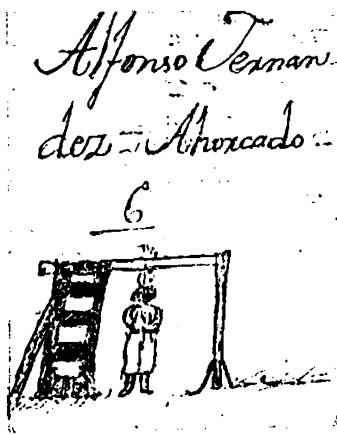 Alfonso Fernan
dez = Ahorcado =
6